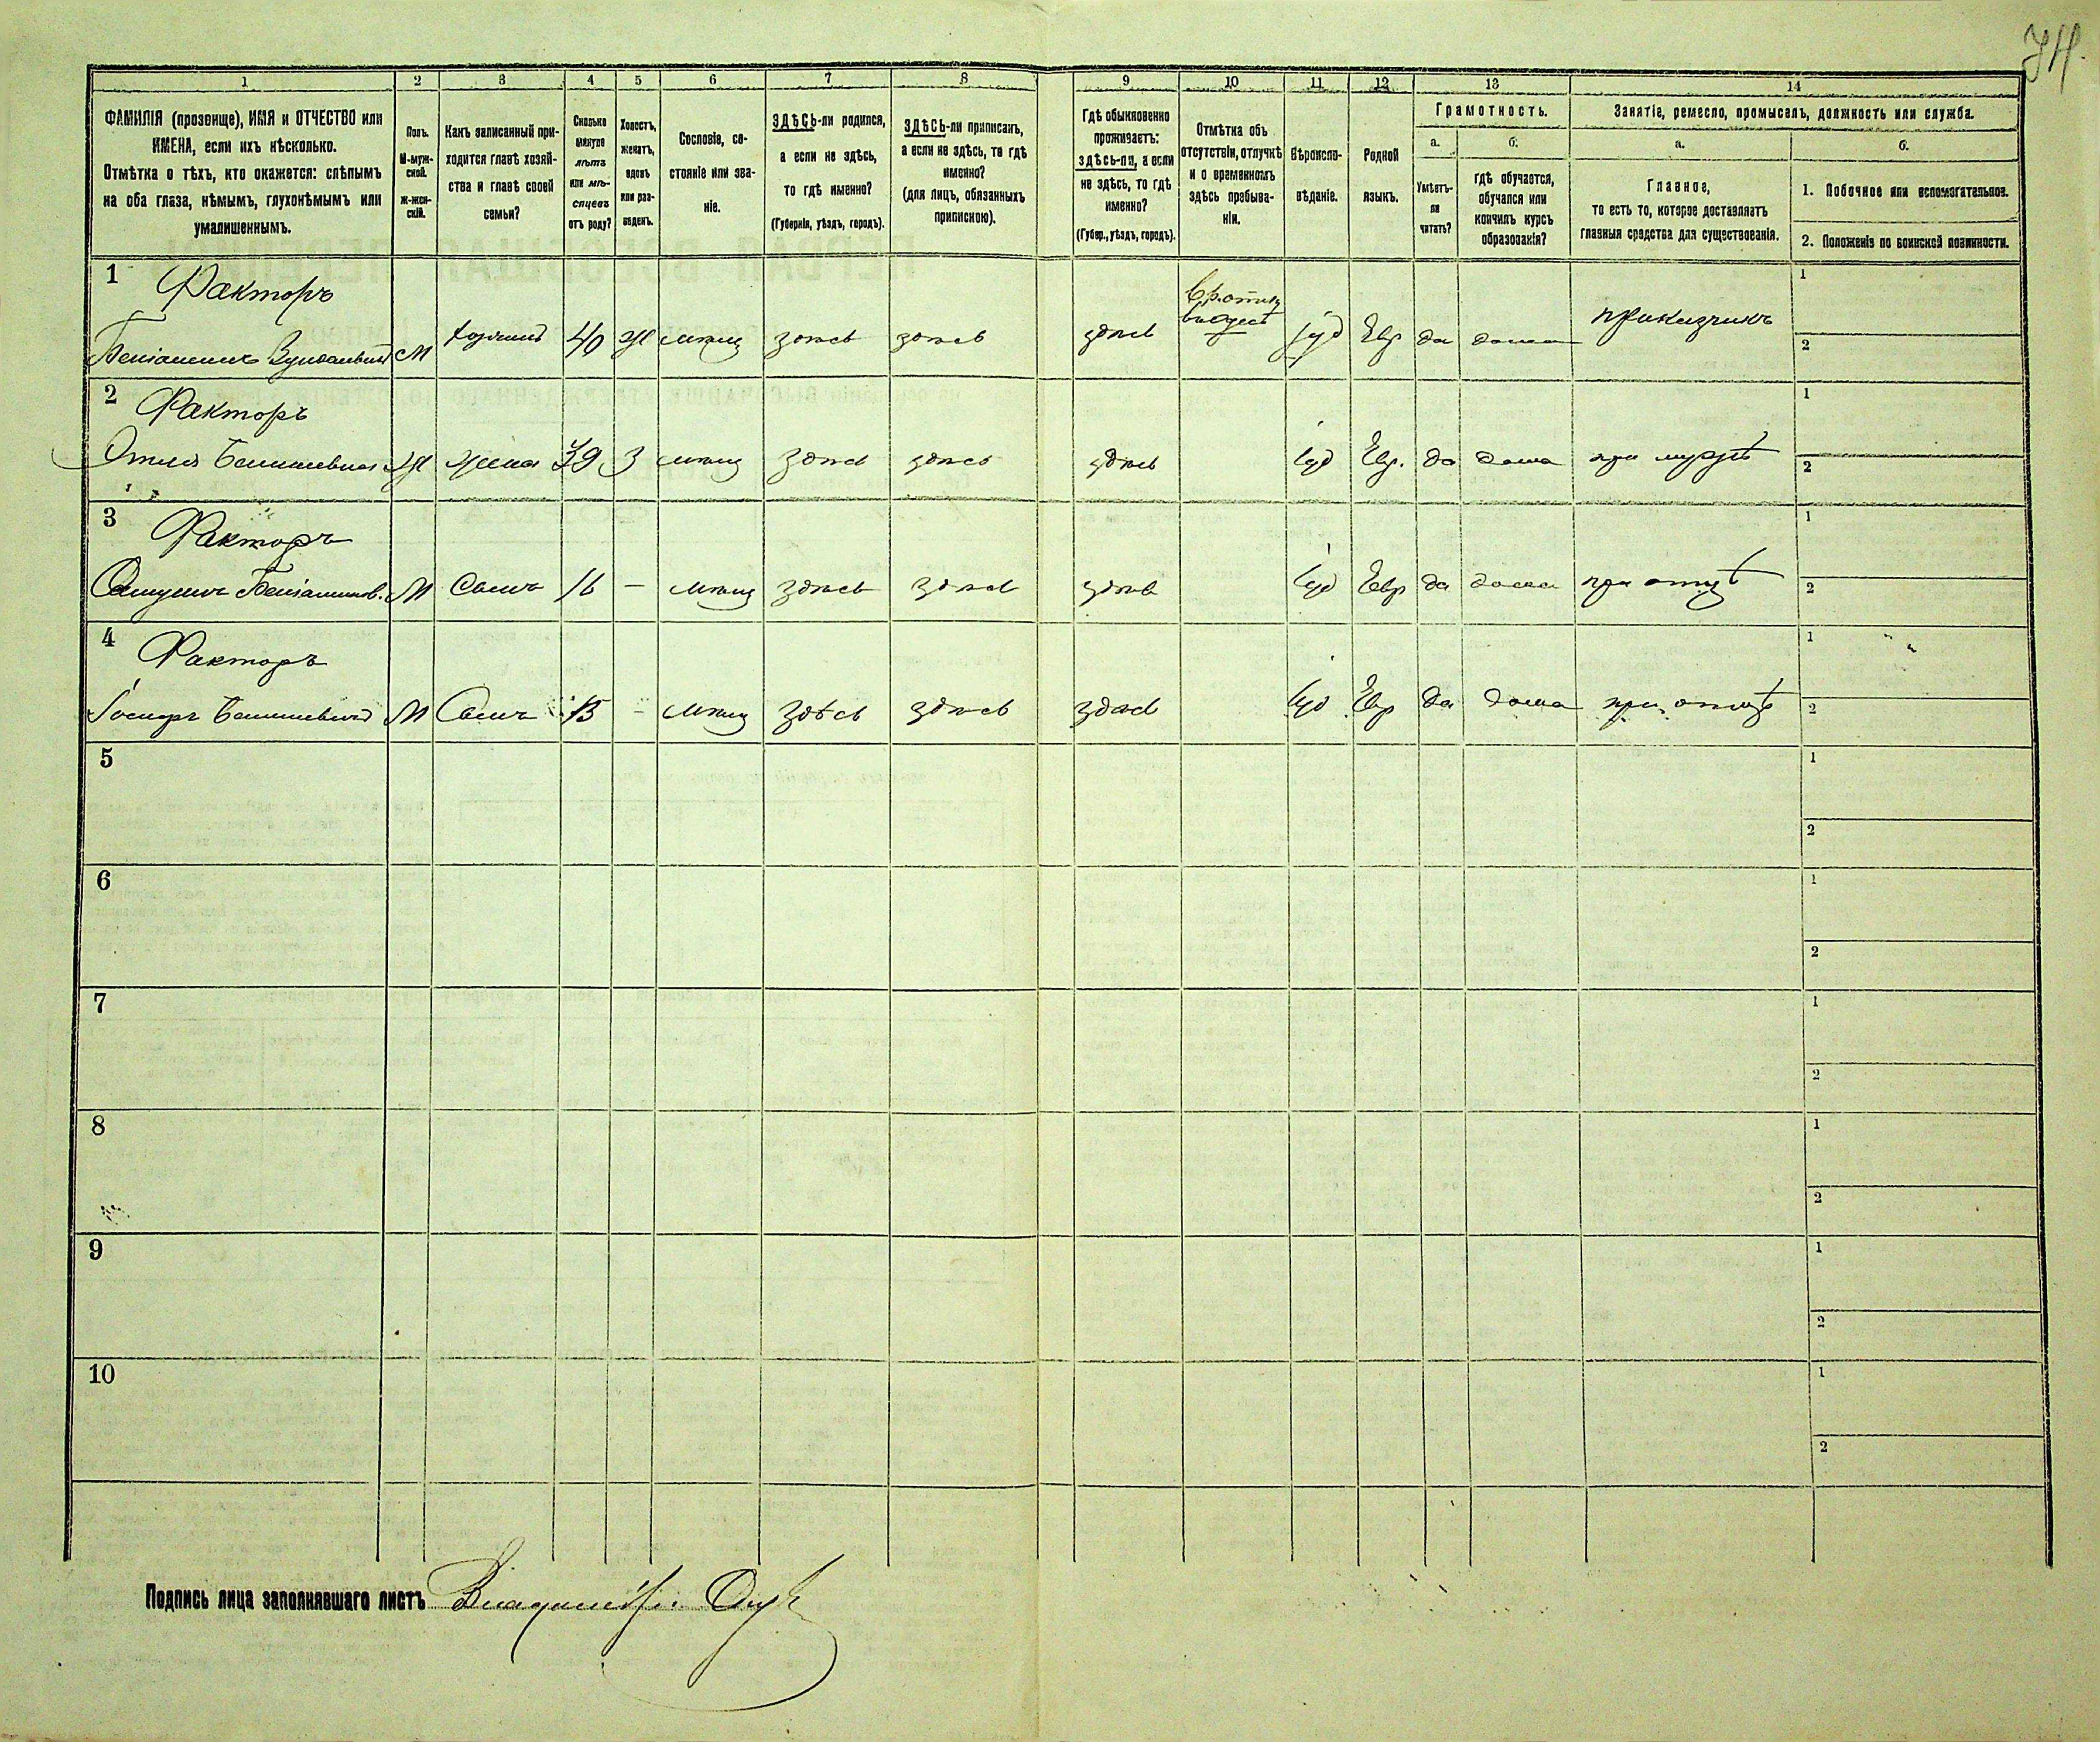 1 2 3 4 5 6 7 8 9 10 11 12 13 14
ФАМИЛІЯ (прозвище), ИМЯ и ОТЧЕСТВО или
ИМЕНА, если ихъ нѣсколько.
Отмѣтка о тѣхъ, кто окажется: слѣпымъ
на оба глаза, нѣмымъ, глухонѣмымъ или
умалишеннымъ.
Полъ.
М-муж-
ской.
Ж-жен-
скій.
Какъ записанный при-
ходится главѣ хозяй-
ства и главѣ своей
семьи?
Сколько
минуло
лѣтъ
или мѣ-
сяцевъ
отъ роду?
Холостъ,
женатъ,
вдовъ
или раз-
веденъ.
Сословіе, со-
стояніе или зва-
ніе.
ЗДѢСЬ-ли родился,
а если не здѣсь,
то гдѣ именно?
(Губернія, уѣздъ, городъ).
ЗДѢСЬ-ли приписанъ,
а если не здѣсь, то гдѣ
именно?
(для лицъ, обязанныхъ
припискою).
Гдѣ обыкновенно
проживаетъ:
здѣсь-ли, а если
не здѣсь, то гдѣ
именно?
(Губер., уѣздъ, городъ).
Отмѣтка объ
отсутствіи, отлучкѣ
и о временномъ
здѣсь пребыва-
ніи.
Вѣроиспо-
вѣданіе.
Родной
языкъ.
Грамотность.
а.
Умѣетъ-
ли
читать?
б.
гдѣ обучается,
обучался или
кончилъ курсъ
образованія?
Занятіе, ремесло, промыселъ, должность или служба.
а.
Главное,
то есть то, которое доставляетъ
главныя средства для существованія.
б.
1. Побочное или вспомогательное.
2. Положеніе по воинской повинности.
1 Факторъ
Беніаминъ М хозяинъ 40 Ж мѣщ здѣсь здѣсь здѣсь Іуд Евр да дома прикащикъ
1
2
2 Факторъ
Ж жена 39 З мѣщ здѣсь здѣсь здѣсь Іуд Евр. да дома при мужѣ
1
2
3 Факторъ
Беніаминов. М Сынъ 16 — мѣщ здѣсь здѣсь здѣсь Іуд Евр да дома при отцѣ
1
2
4 Факторъ
М Сынъ 13 - мѣщ здѣсь здѣсь здѣсь Іуд Евр да дома при отцѣ
1
2
5
1
2
6
1
2
7
1
2
8
1
2
9
1
2
10
1
2
Подпись лица заполнявшаго листъ